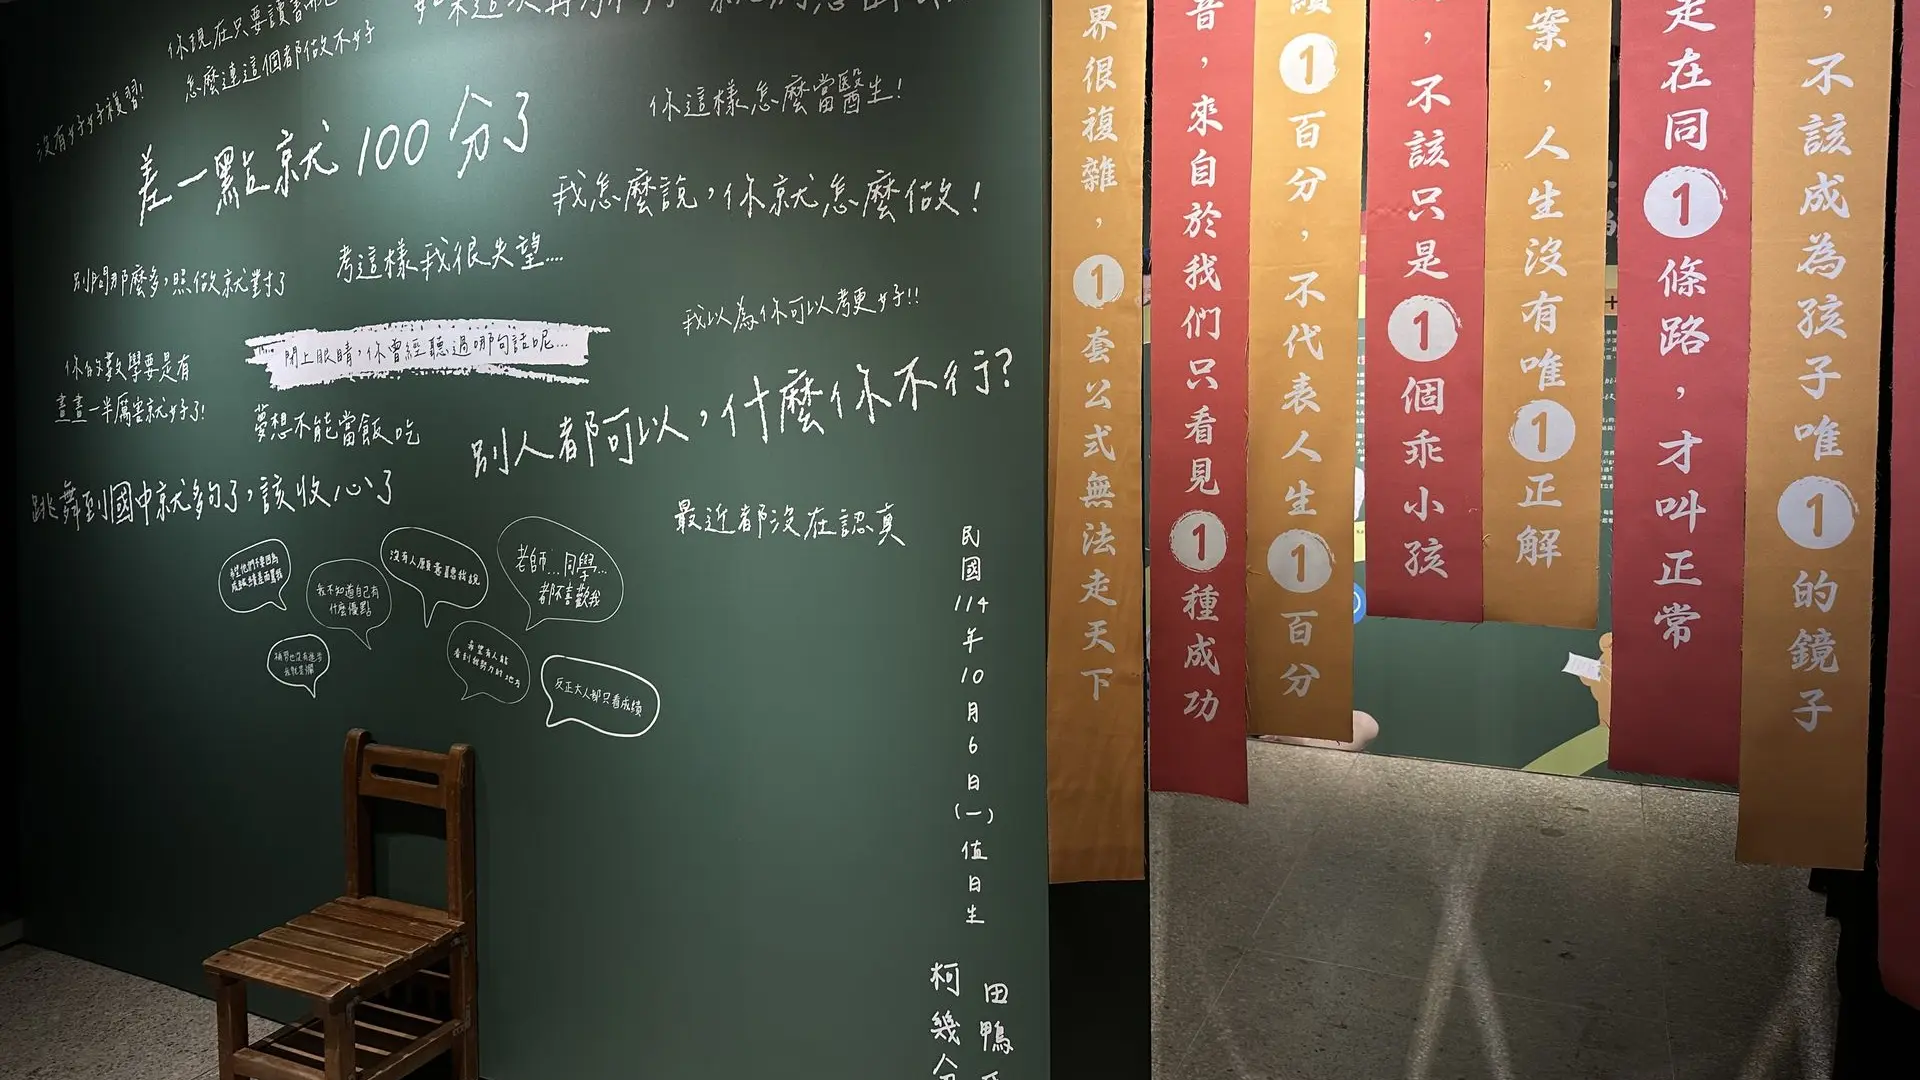 你現在只要讀書而已
怎麼連這個都做不好
沒有好好複習!
差一點就100分了
你這樣怎麼當醫生!
我怎麼說,你就怎麼做!
別問那麼多,照做就對了
考這樣我很失望....
我以為你可以考更好!!
閉上眼睛,你曾經聽過哪句話呢...
你的數學要是有
畫畫一半厲害就好了!
夢想不能當飯吃
別人都可以,什麼你不行?
跳舞到國中就夠了,該收心了
最近都沒在認真
我不知道自己有
什麼優點
沒有人願意聽我說
老師...同學...
都不喜歡我
希望有人能
看到我努力的地方
反正大人都只看成績
民國114年10月6日(一)值日生
田鴨
柯幾分
界很複雜,1套公式無法走天下
音,來自於我們只看見1種成功
績1百分,不代表人生1百分
,不該只是1個乖小孩
案,人生沒有唯1正解
走在同1條路,才叫正常
,不該成為孩子唯1的鏡子